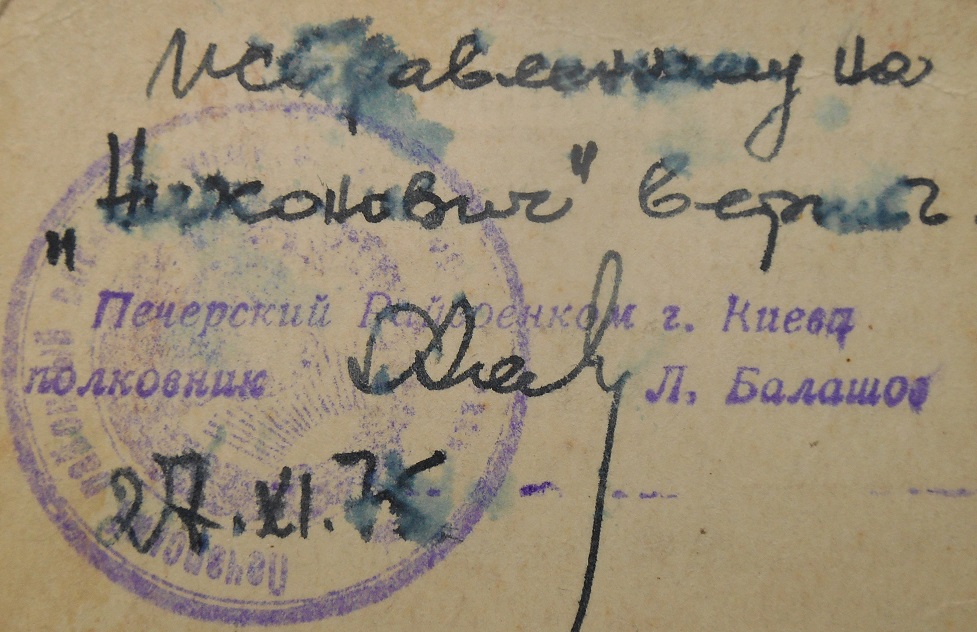 исправленному на
"Никонович" верить
Печерский Райвоенком г. Киева
полковник Л. Балашов
27.XI.75
Печерс